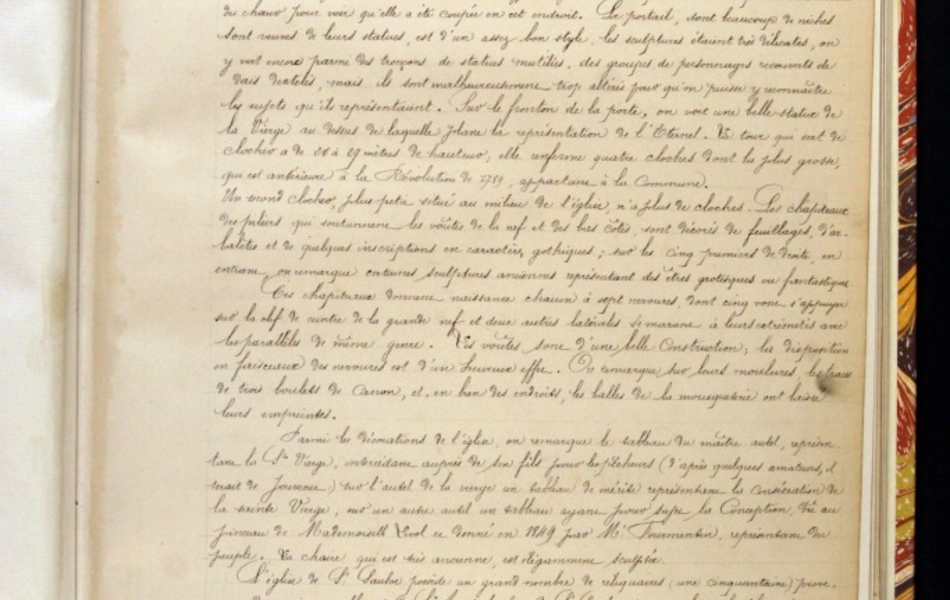 du chœur pour voir qu'elle a été coupée en cet endroit. Le portail, dont beaucoup de niches
sont veuves de leurs statues, est d'un assez bon style, les sculptures étaient très délicates, on
y voit encore parmi des tronçons de statues mutilées, des groupes de personnages recouverts de
dais dentelés, mais ils sont malheureusement trop altérés pour qu'on puisse y reconnaître
les sujets qu'ils représentaient. Sur le fronton de la porte, on voit une belle statue de
la Vierge au dessus de laquelle plane la représentation de l'Eternel. La tour qui sert de
clocher a de 28 à 29 mètres de hauteur, elle renferme quatre cloches dont la plus grosse,
qui est antérieure à la Révolution de 1789, appartient à la Commune.
Un second clocher, plus petit situé au milieu de l'église, n'a plus de cloches. Les chapiteaux
des piliers qui soutiennent les voûtes de la nef et des bas côtés, sont décorés de feuillages, d'ar-
balètes et de quelques inscriptions en caractères gothiques; sur les cinq premiers de droite, en
entrant, on remarque certaines sculptures anciennes représentant des êtres grotesques ou fantastiques
Ces chapiteaux donnent naissance chacun à sept nervures, dont cinq vont s'appuyer
sur la clef de cintre de la grande nef et deux autres latérales se marient à leurs extrémités avec
les parallèles de même genre. Les voûtes sont d'une belle Construction; la disposition
en faisceaux des nervures est d'un heureux effet. On remarque sur leurs moulures, les traces
de trois boulets de canon, et, en bien des endroits, les balles de la mousqueterie ont laissé
leurs empreintes.
Parmi les décorations de l'église, on remarque le tableau du maître autel, représen-
tant la Ste Vierge, intercédant auprès de son fils pour les pêcheurs (d'après quelques amateurs, il
serait de Jouvenet) sur l'autel de la vierge un tableau de mérite représentant la consécration de
la sainte Vierge, sur un autre autel un tableau ayant pour sujet la Conception, dû au
pinceau de Mademoiselle et donné en 1849 par Mr Fourmentin, représentant du
peuple. La chaire qui est très ancienne, est élégamment sculptée.
L'église de St Saulve possède un grand nombre de reliquaires (une cinquantaine) prove-